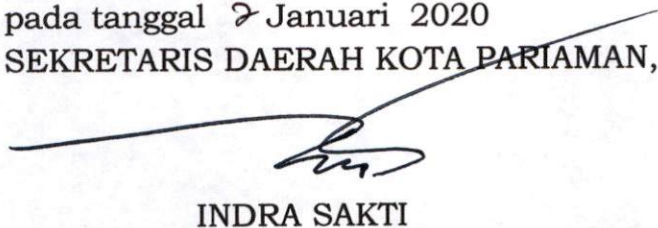 pada tanggal 2 Januari 2020
SEKRETARIS DAERAH KOTA PARIAMAN,
INDRA SAKTI